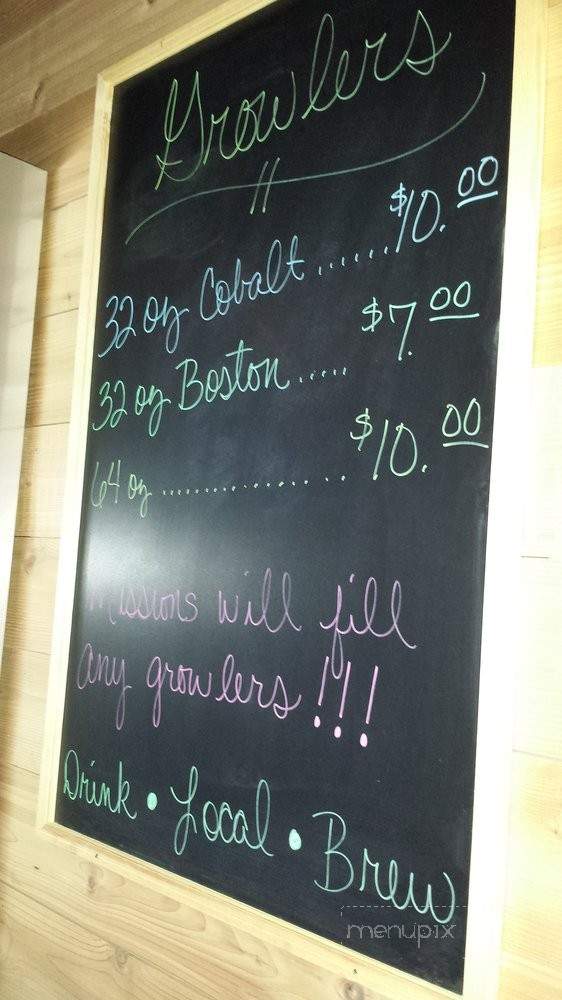 Growlers
32 oz Cobalt ...... $10.00
32 oz Boston ..... $7.00
64 oz .................. $10.00
Missions will fill
any growlers!!!
Drink • Local • Brew
menupix